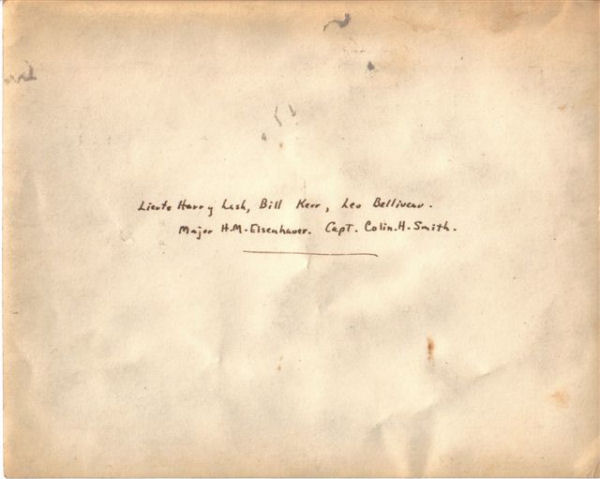 Lieuts Harry Lash, Bill Kerr, Leo Belliveau.
Major H.M. Eisenhauer. Capt. Colin.H. Smith.